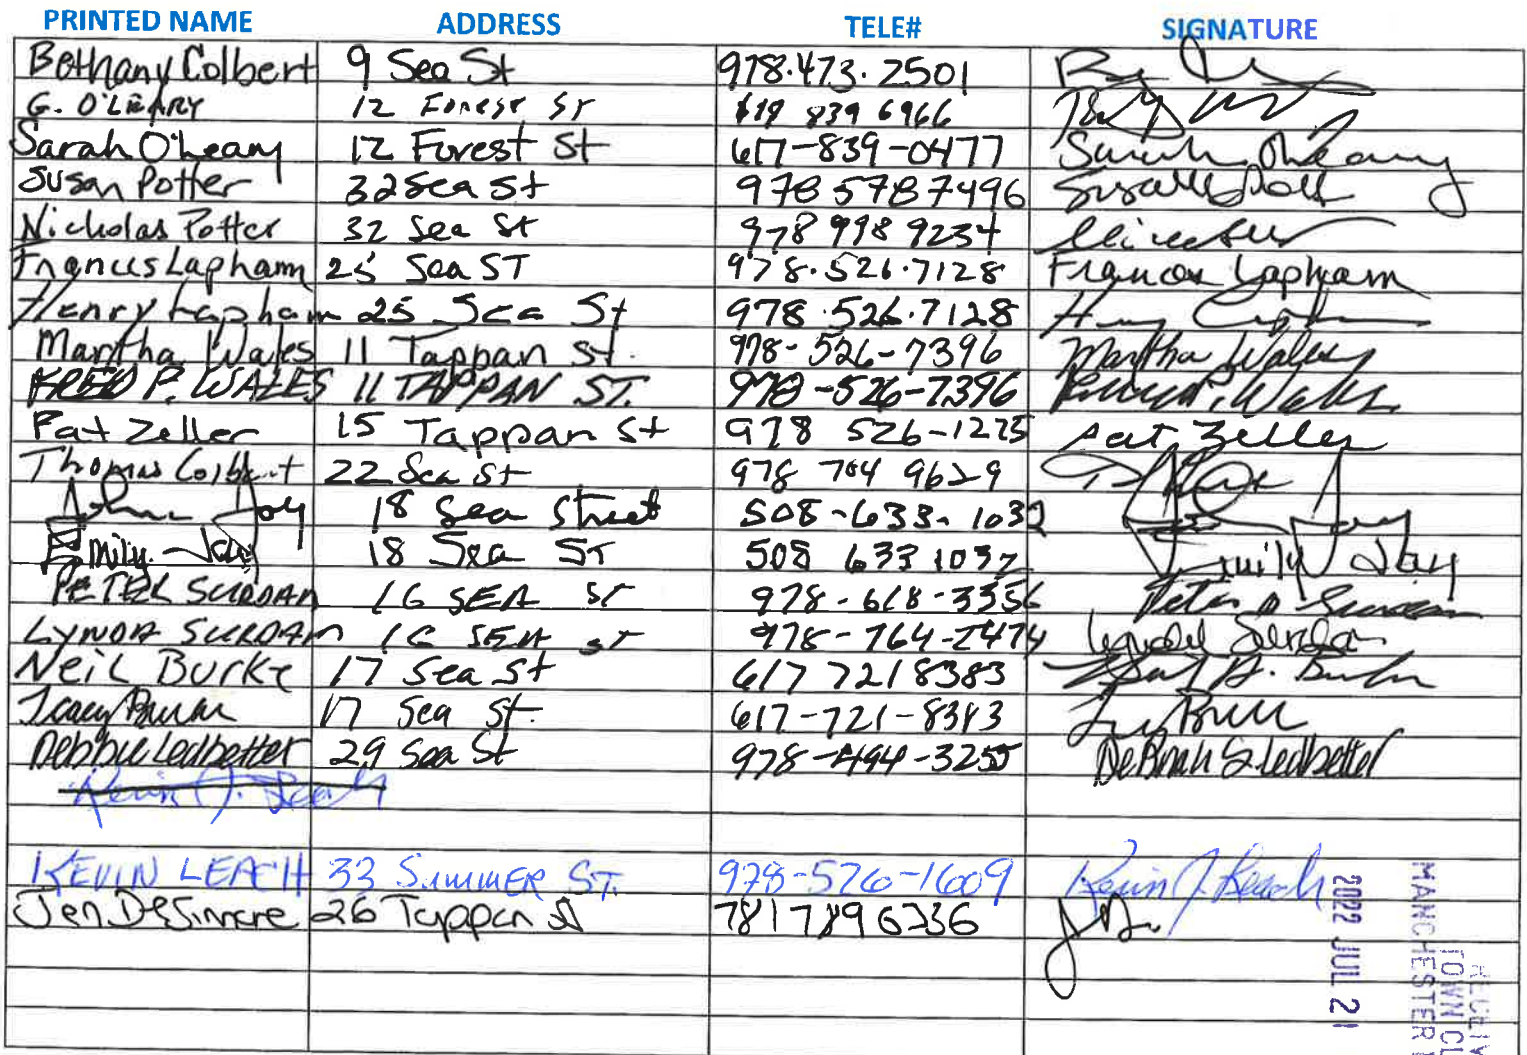 PRINTED NAME ADDRESS TELE# SIGNATURE
Bethany Colbert 9 Sea St 978.473.2501
G. O'LEARY 12 Forest St 617 839 6966
Sarah O'Leary 12 Forest St 617-839-0477 Sarah O'Leary
Susan Potter 32 Sea St 978 578 7496 Susan Pott
Nicholas Potter 32 Sea St 978 998 9234
Francis Lapham 25 Sea ST 978.526.7128 Frances Lapham
Henry Lapham 25 Sea St 978.526.7128
Martha Wales 11 Tappan St. 978-526-7396 Martha Wales
FRED P. WALES 11 TAPPAN ST. 978-526-7396
Pat Zeller 15 Tappan St 978 526-1275 Pat Zeller
Thomas Colbert 22 Sea St 978 704 9629
Joy 18 Sea Street 508-633-1032 Joy
Emily Joy 18 Sea ST 508 633 1032 Emily Joy
PETER SURDAM 16 SEA ST 978-618-3356 Peter D Surdam
LYNDA SURDAM 16 SEA ST 978-764-2474 Lynda Surdam
Neil Burke 17 Sea St 617 721 8383
Tracy 17 Sea St. 617-721-8343
Debbie Ledbetter 29 Sea St 978-494-3255 Deborah S Ledbetter
Kevin J. Leach
KEVIN LEACH 33 SUMMER ST. 978-526-1609 Kevin J Leach
Jen DeSimone 26 Tappan St 781 789 6336
2022 JUL 21
MANCHESTER
TOWN CL
RECEIV